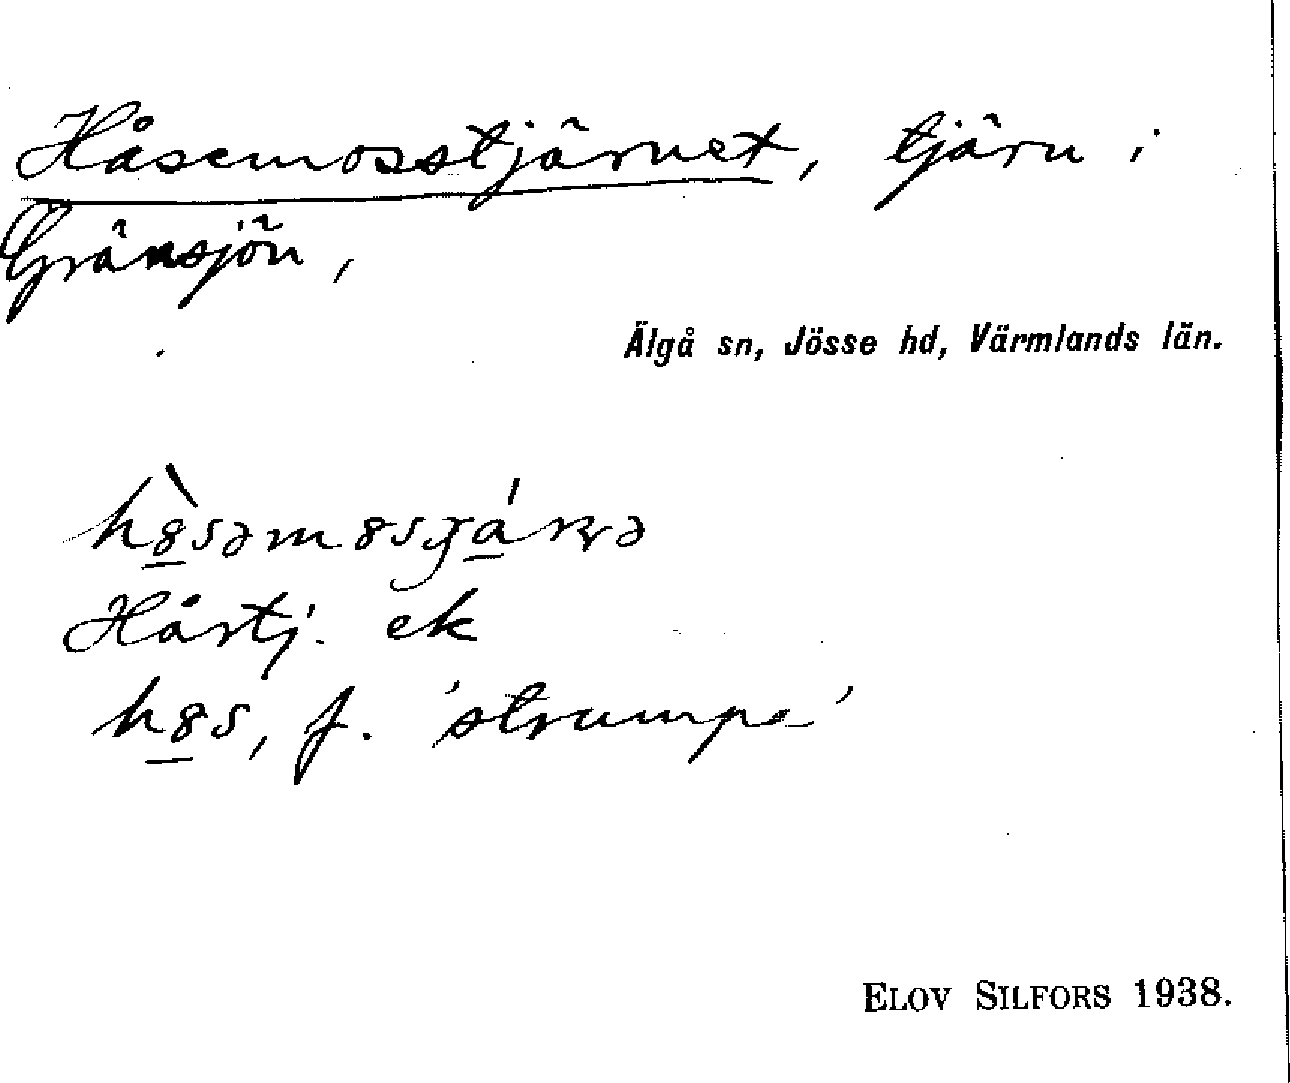 Håsemosstjärnet, tjärn i
Gränsjön,
Älgå sn, Jösse hd, Värmlands län.
Hårtj. ek
h8s, f. 'strumpa'
ELOV SILFORS 1938.